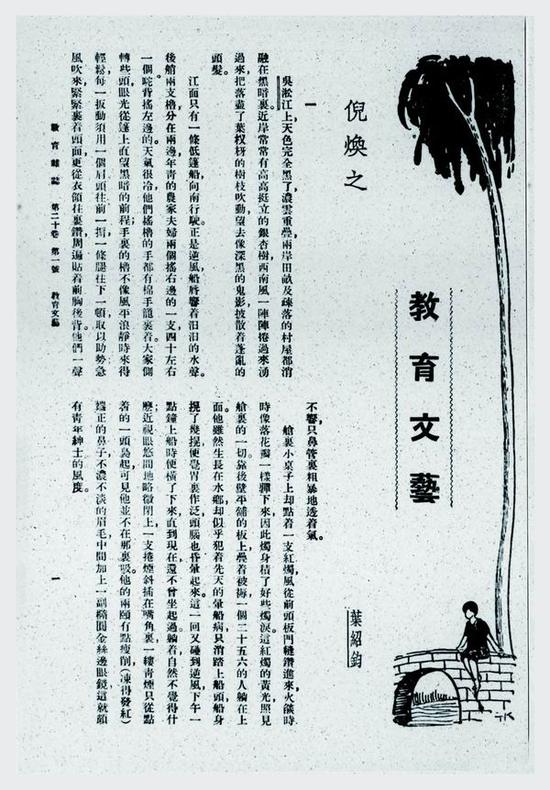 教育文藝
倪煥之
葉紹鈞
一
吳淞江上天色完全黑了。濃雲重疊，兩岸田畝及疎落的村屋都消
融在黑暗裏。近岸常常有高高挺立的銀杏樹，西南風一陣陣捲過來湧
過來，把落盡了葉杈枒的樹枝吹動望去像深黑的鬼影披散着蓬亂的
頭髮。
江面只有一條低篷船向南行駛。正是逆風，船唇響着汩汩的水聲。
後艄兩支櫓，分在兩邊。年青的農家夫婦兩個搖右邊的一支，四十左右
一個駝背搖左邊的。天氣很冷，他們搖櫓的手都有棉手籠裏着。大家側
轉些頭，眼光從篷上直望黑暗的前程；手裏的櫓不像風平浪靜時來得
輕鬆，每一扳動須用一個肩頭往前一掮，一條腿往下一頓，取以助勢；急
風吹來，緊緊裹着頭面，更從衣領往裏鑽，周遍貼着前胸後背。他們一聲
不響，只鼻管裏粗暴地透着氣。
艙裏小桌子上却點着一支紅燭，風從前頭板門縫鑽進來，火燄時
時像落花瓣一樣嚲下來，因此燭身積了好些燭淚。這紅燭的黃光照見
艙裏的一切。靠後壁平鋪的板上疊着被褥，一個二十五六的人躺在上
面。他雖然生長在水鄉，却似乎犯着先天的暈船病，只消踏上船頭，船身
提了幾提，便覺胃裏作泛，頭腦也昏暈起來。這一回又碰到逆風，下午一
點鐘上船時便橫了下來，直到現在，還不曾坐起過。躺着，自然不覺得什
麽；近視眼悠閒地略微閉上，一支捲煙斜插在嘴角裏，一縷青煙只從點
着的一頭裊起，可見他並不在那裏吸。他的兩頤有點瘦削，（凍得發紅）
端正的鼻子，不濃不淡的眉毛，中間加上一副橢圓金絲邊眼鏡，這就頗
有青年紳士的風度。
教育雜誌　第二十卷　第一號　教育文藝
一
TK